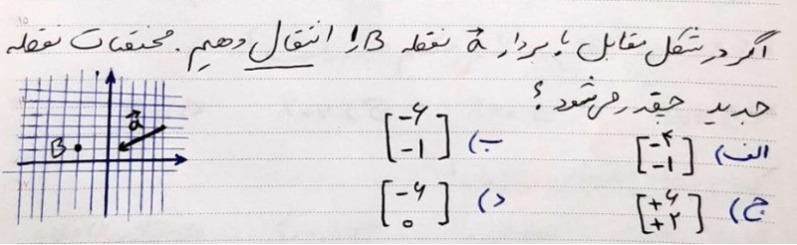 اگر در شکل مقابل با بردار a⃗ نقطه B را انتقال دهیم. مختصات نقطه
جدید چقدر می‌شود؟
الف) [-۴ -۱] ب) [-۶ -۱]
ج) [+۶ +۲] د) [-۶ ۰]
B a⃗